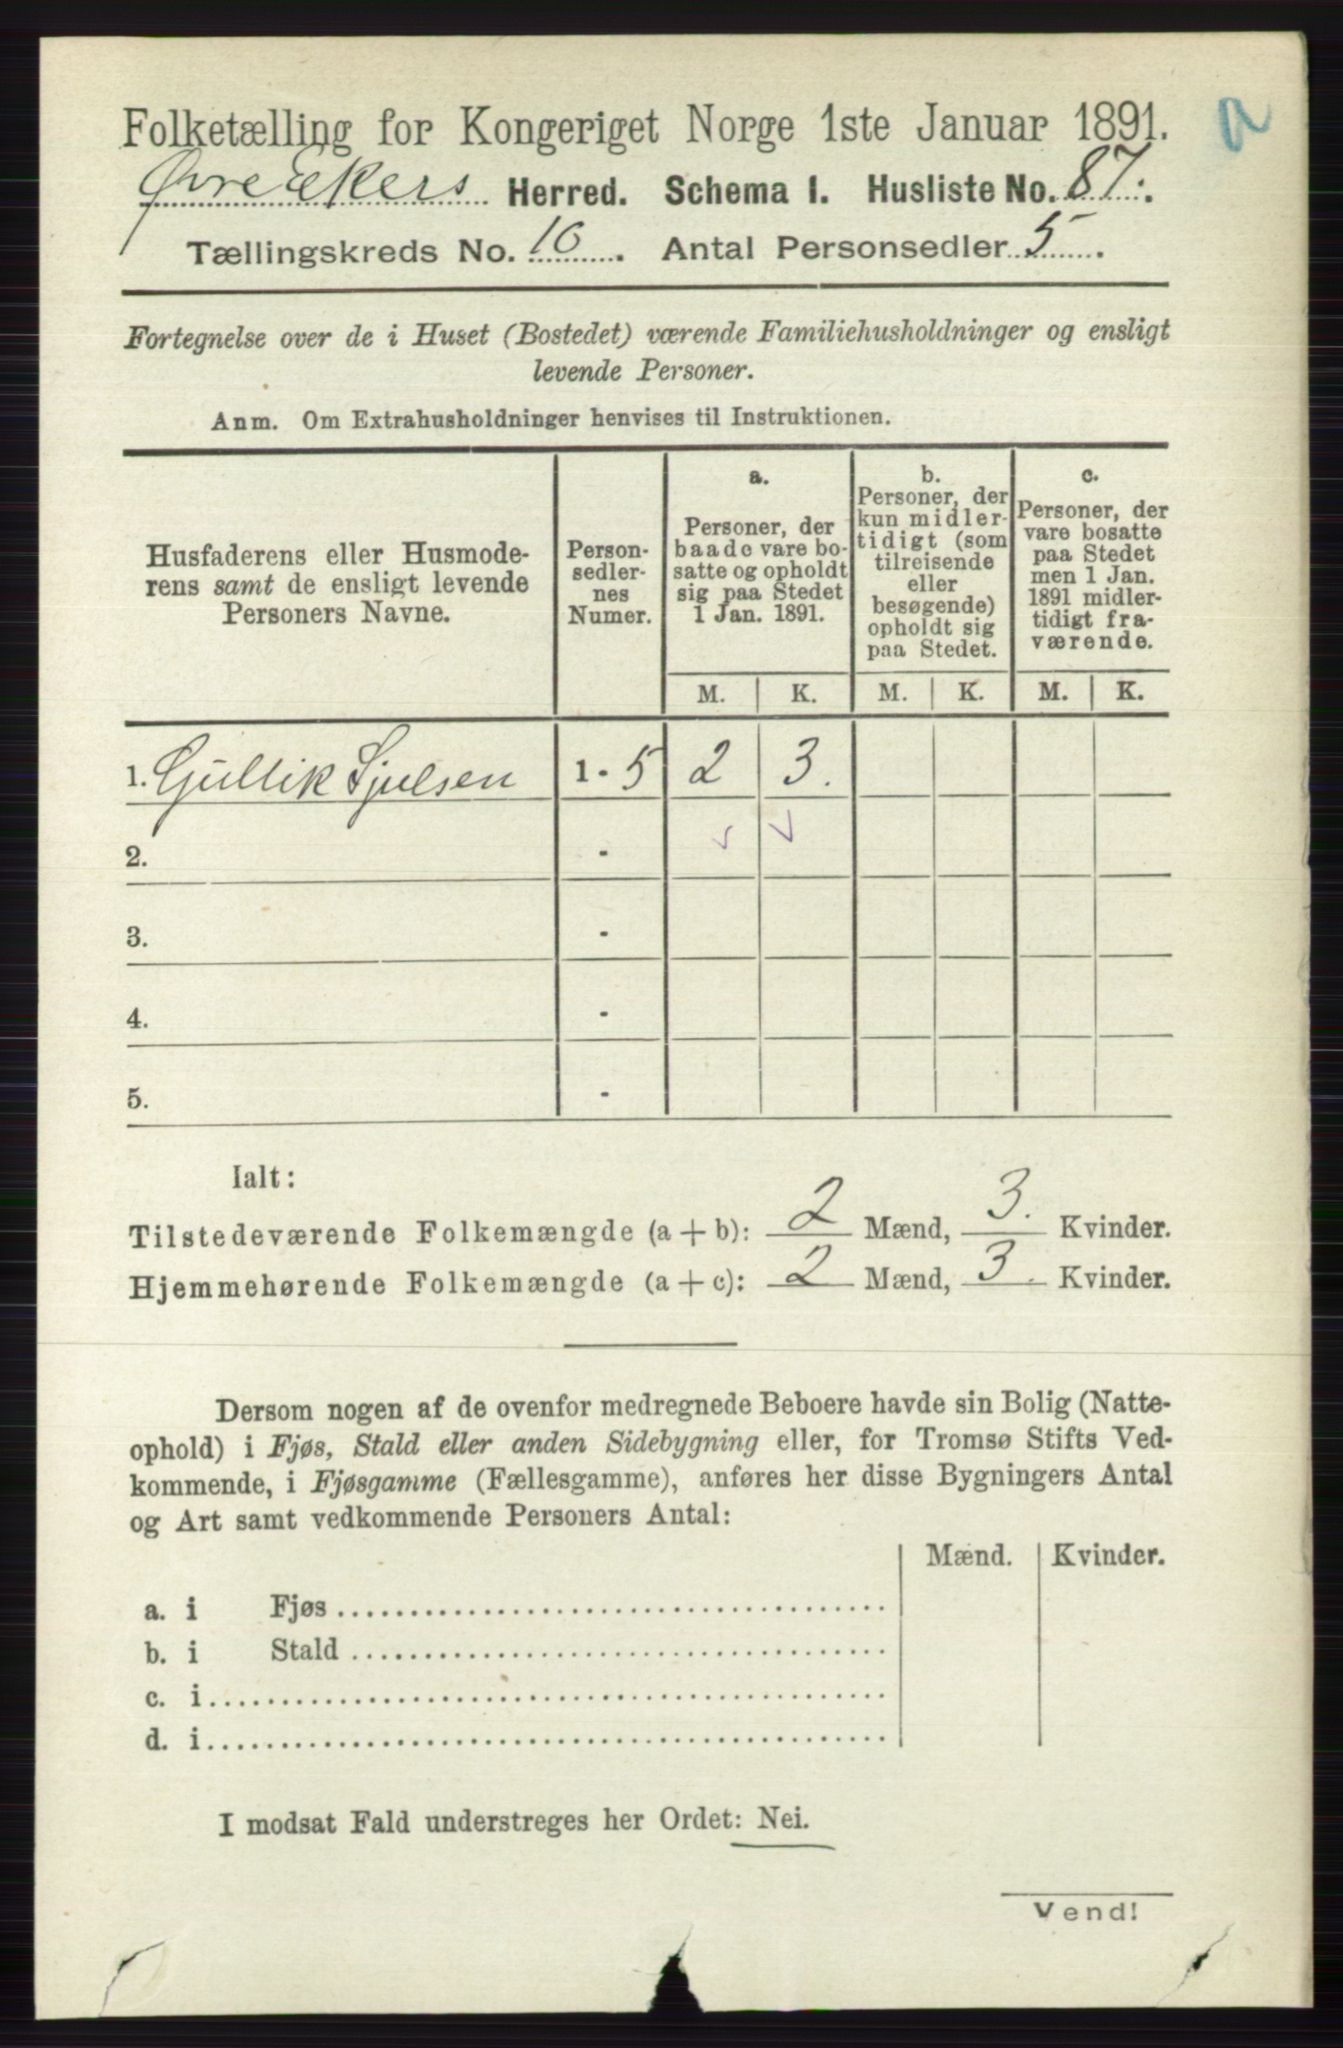 Folketælling for Kongeriget Norge 1ste Januar 1891. a
Øvre Ekers Herred. Schema 1. Husliste No. 87.
Tællingskreds No. 10. Antal Personsedler 5.
Fortegnelse over de i Huset (Bostedet) værende Familiehusholdninger og ensligt
levende Personer.
Anm. Om Extrahusholdninger henvises til Instruktionen.
Husfaderens eller Husmode-
rens samt de ensligt levende
Personers Navne.
Person-
sedler-
nes
Numer.
a.
Personer, der
baade vare bo-
satte og opholdt
sig paa Stedet
1 Jan. 1891.
b.
Personer, der
kun midler-
tidigt (som
tilreisende
eller
besøgende)
opholdt sig
paa Stedet.
c.
Personer, der
vare bosatte
paa Stedet
men 1 Jan.
1891 midler-
tidigt fra-
værende.
M. K. M. K. M. K.
1. Gullik Sjulsen 1 - 5 2 3.
2. -
3. -
4. -
5. -
Ialt:
Tilstedeværende Folkemængde (a + b): 2 Mænd, 3. Kvinder.
Hjemmehørende Folkemængde (a + c): 2 Mænd, 3. Kvinder.
Dersom nogen af de ovenfor medregnede Beboere havde sin Bolig (Natte-
ophold) i Fjøs, Stald eller anden Sidebygning eller, for Tromsø Stifts Ved-
kommende, i Fjøsgamme (Fællesgamme), anføres her disse Bygningers Antal
og Art samt vedkommende Personers Antal:
Mænd. Kvinder.
a. i Fjøs
b. i Stald
c. i
d. i
I modsat Fald understreges her Ordet: Nei.
Vend!